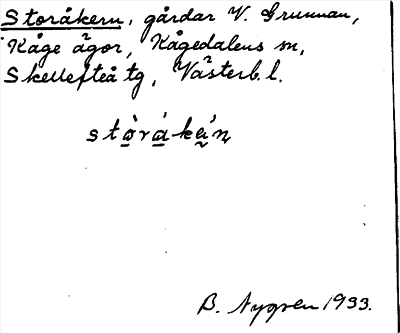 Storåkern, gårdar V. Grunnan,
Kåge ägor, Kågedalens sn,
Skellefteå tg, Västerb. l.
B. Nygren 1933.